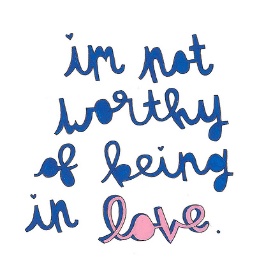 im not
worthy
of being
in love.